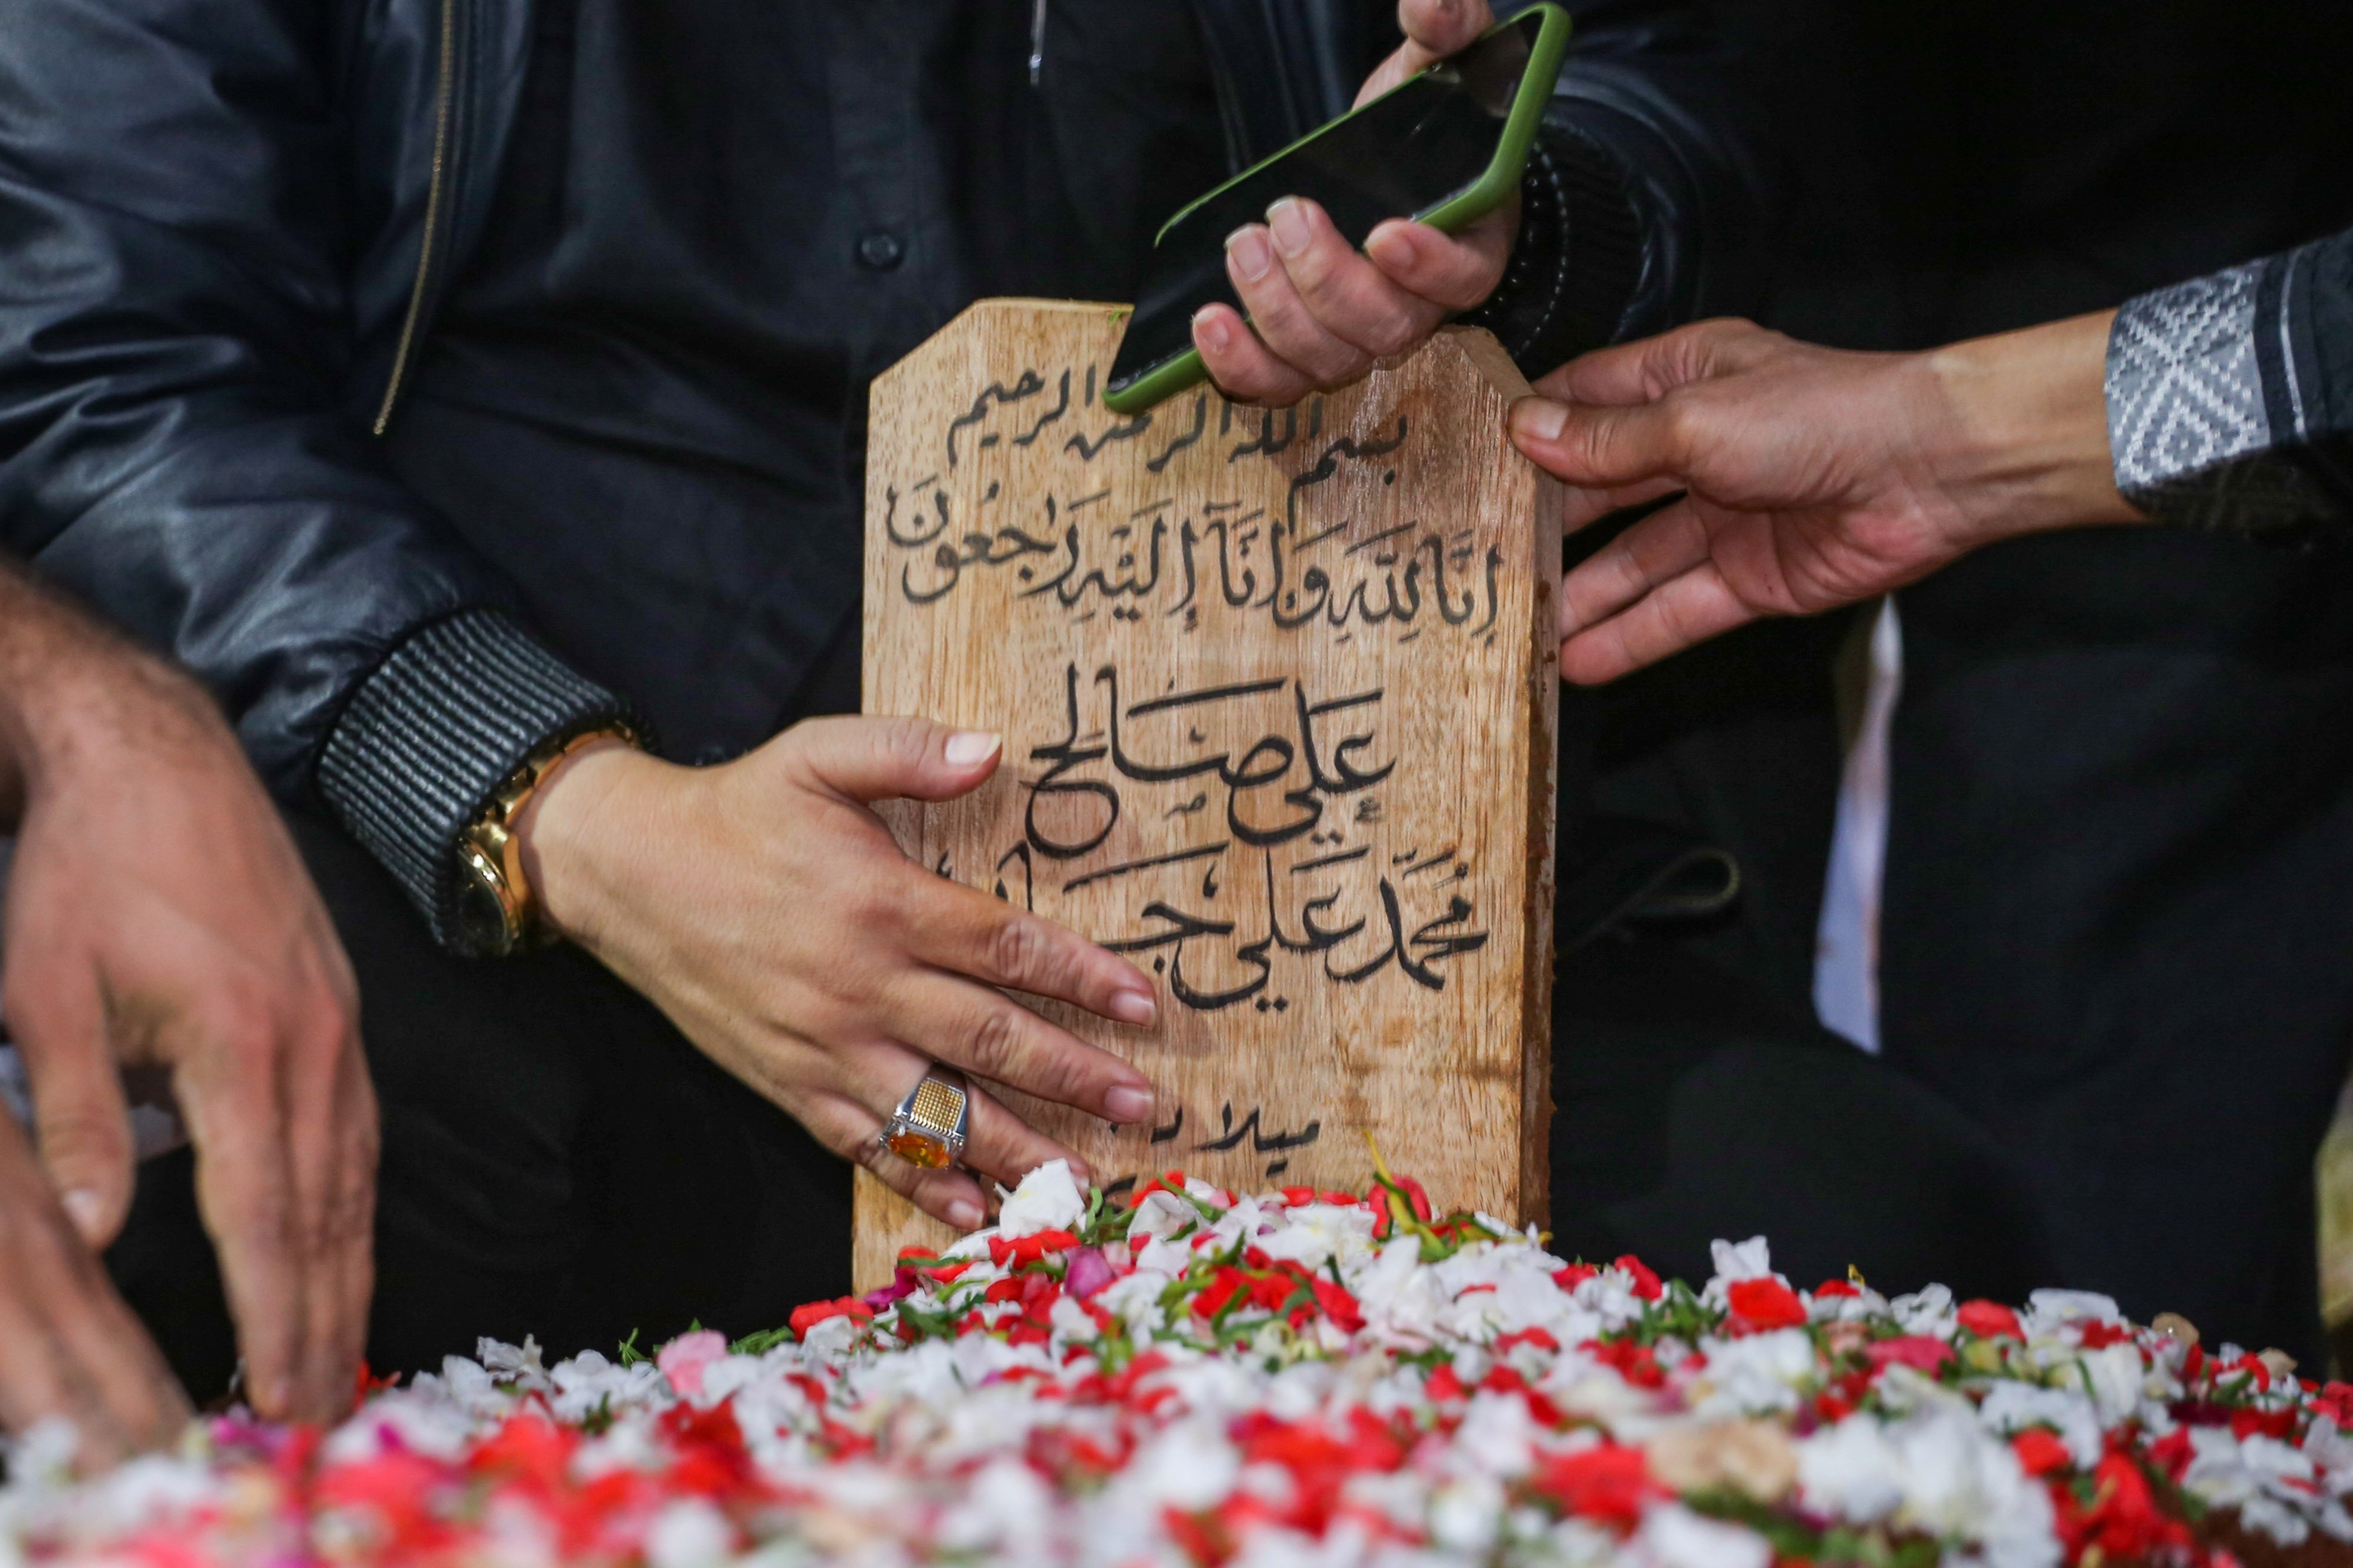 بسم الله الرحمن الرحيم
إِنَّا لِلَّهِ وَإِنَّآ إِلَيْهِ رَاجِعُونَ
عَلِي صَالِح
مُحَمَّد عَلِي
ميلاد